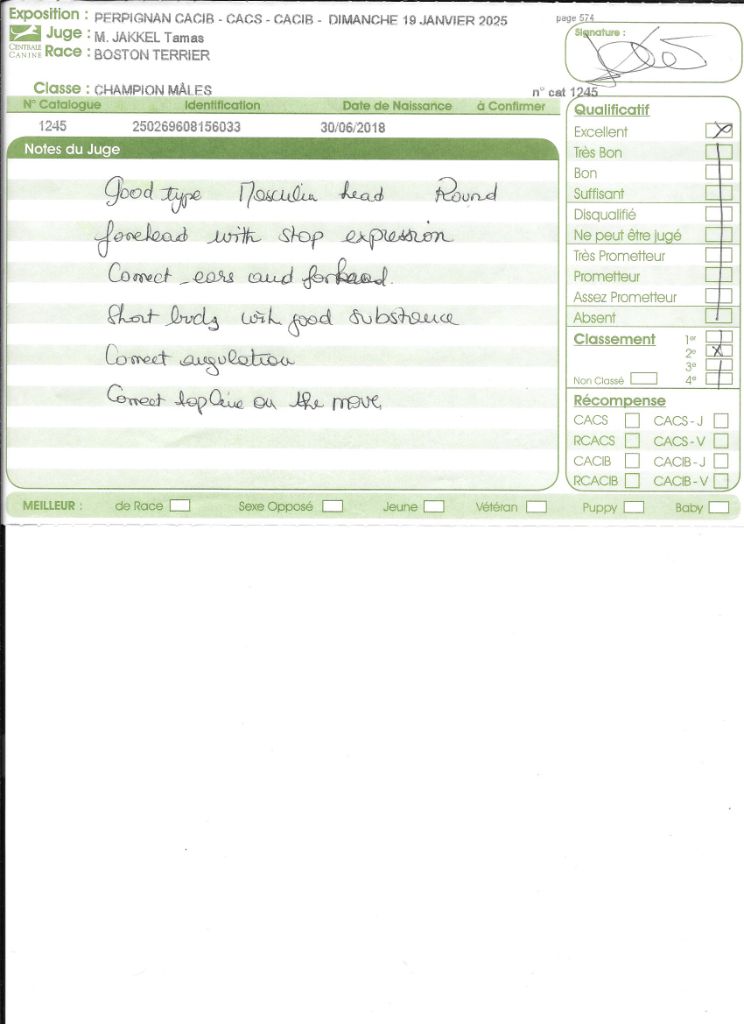 Exposition : PERPIGNAN CACIB - CACS - CACIB - DIMANCHE 19 JANVIER 2025
page 574
CENTRALE CANINE
Juge : M. JAKKEL Tamas
Race : BOSTON TERRIER
Signature :
Classe : CHAMPION MÂLES
n° cat 1245
N° Catalogue Identification Date de Naissance à Confirmer
1245 250269608156033 30/06/2018
Notes du Juge
Good type Masculin head Round
forehead with stop expression
Correct ears and forhead.
Short body with good substance
Correct angulation
Correct topline on the move
Qualificatif
Excellent X
Très Bon
Bon
Suffisant
Disqualifié
Ne peut être jugé
Très Prometteur
Prometteur
Assez Prometteur
Absent
Classement 1er
2e X
3e
Non Classé 4e
Récompense
CACS CACS - J
RCACS CACS - V
CACIB CACIB - J
RCACIB CACIB - V
MEILLEUR : de Race Sexe Opposé Jeune Vétéran Puppy Baby